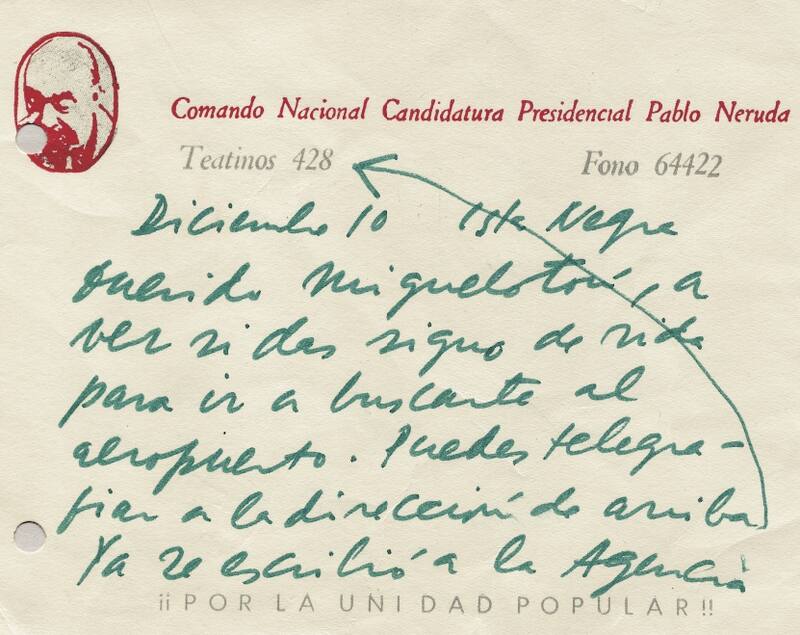 Comando Nacional Candidatura Presidencial Pablo Neruda
Teatinos 428 Fono 64422
Diciembre 10 Isla Negra
Querido Miguelotón, a
ver si das signo de vida
para ir a buscarte al
aeropuerto. Puedes telegra-
fiar a la dirección de arriba
Ya se escribió a la Agencia
¡¡POR LA UNIDAD POPULAR!!